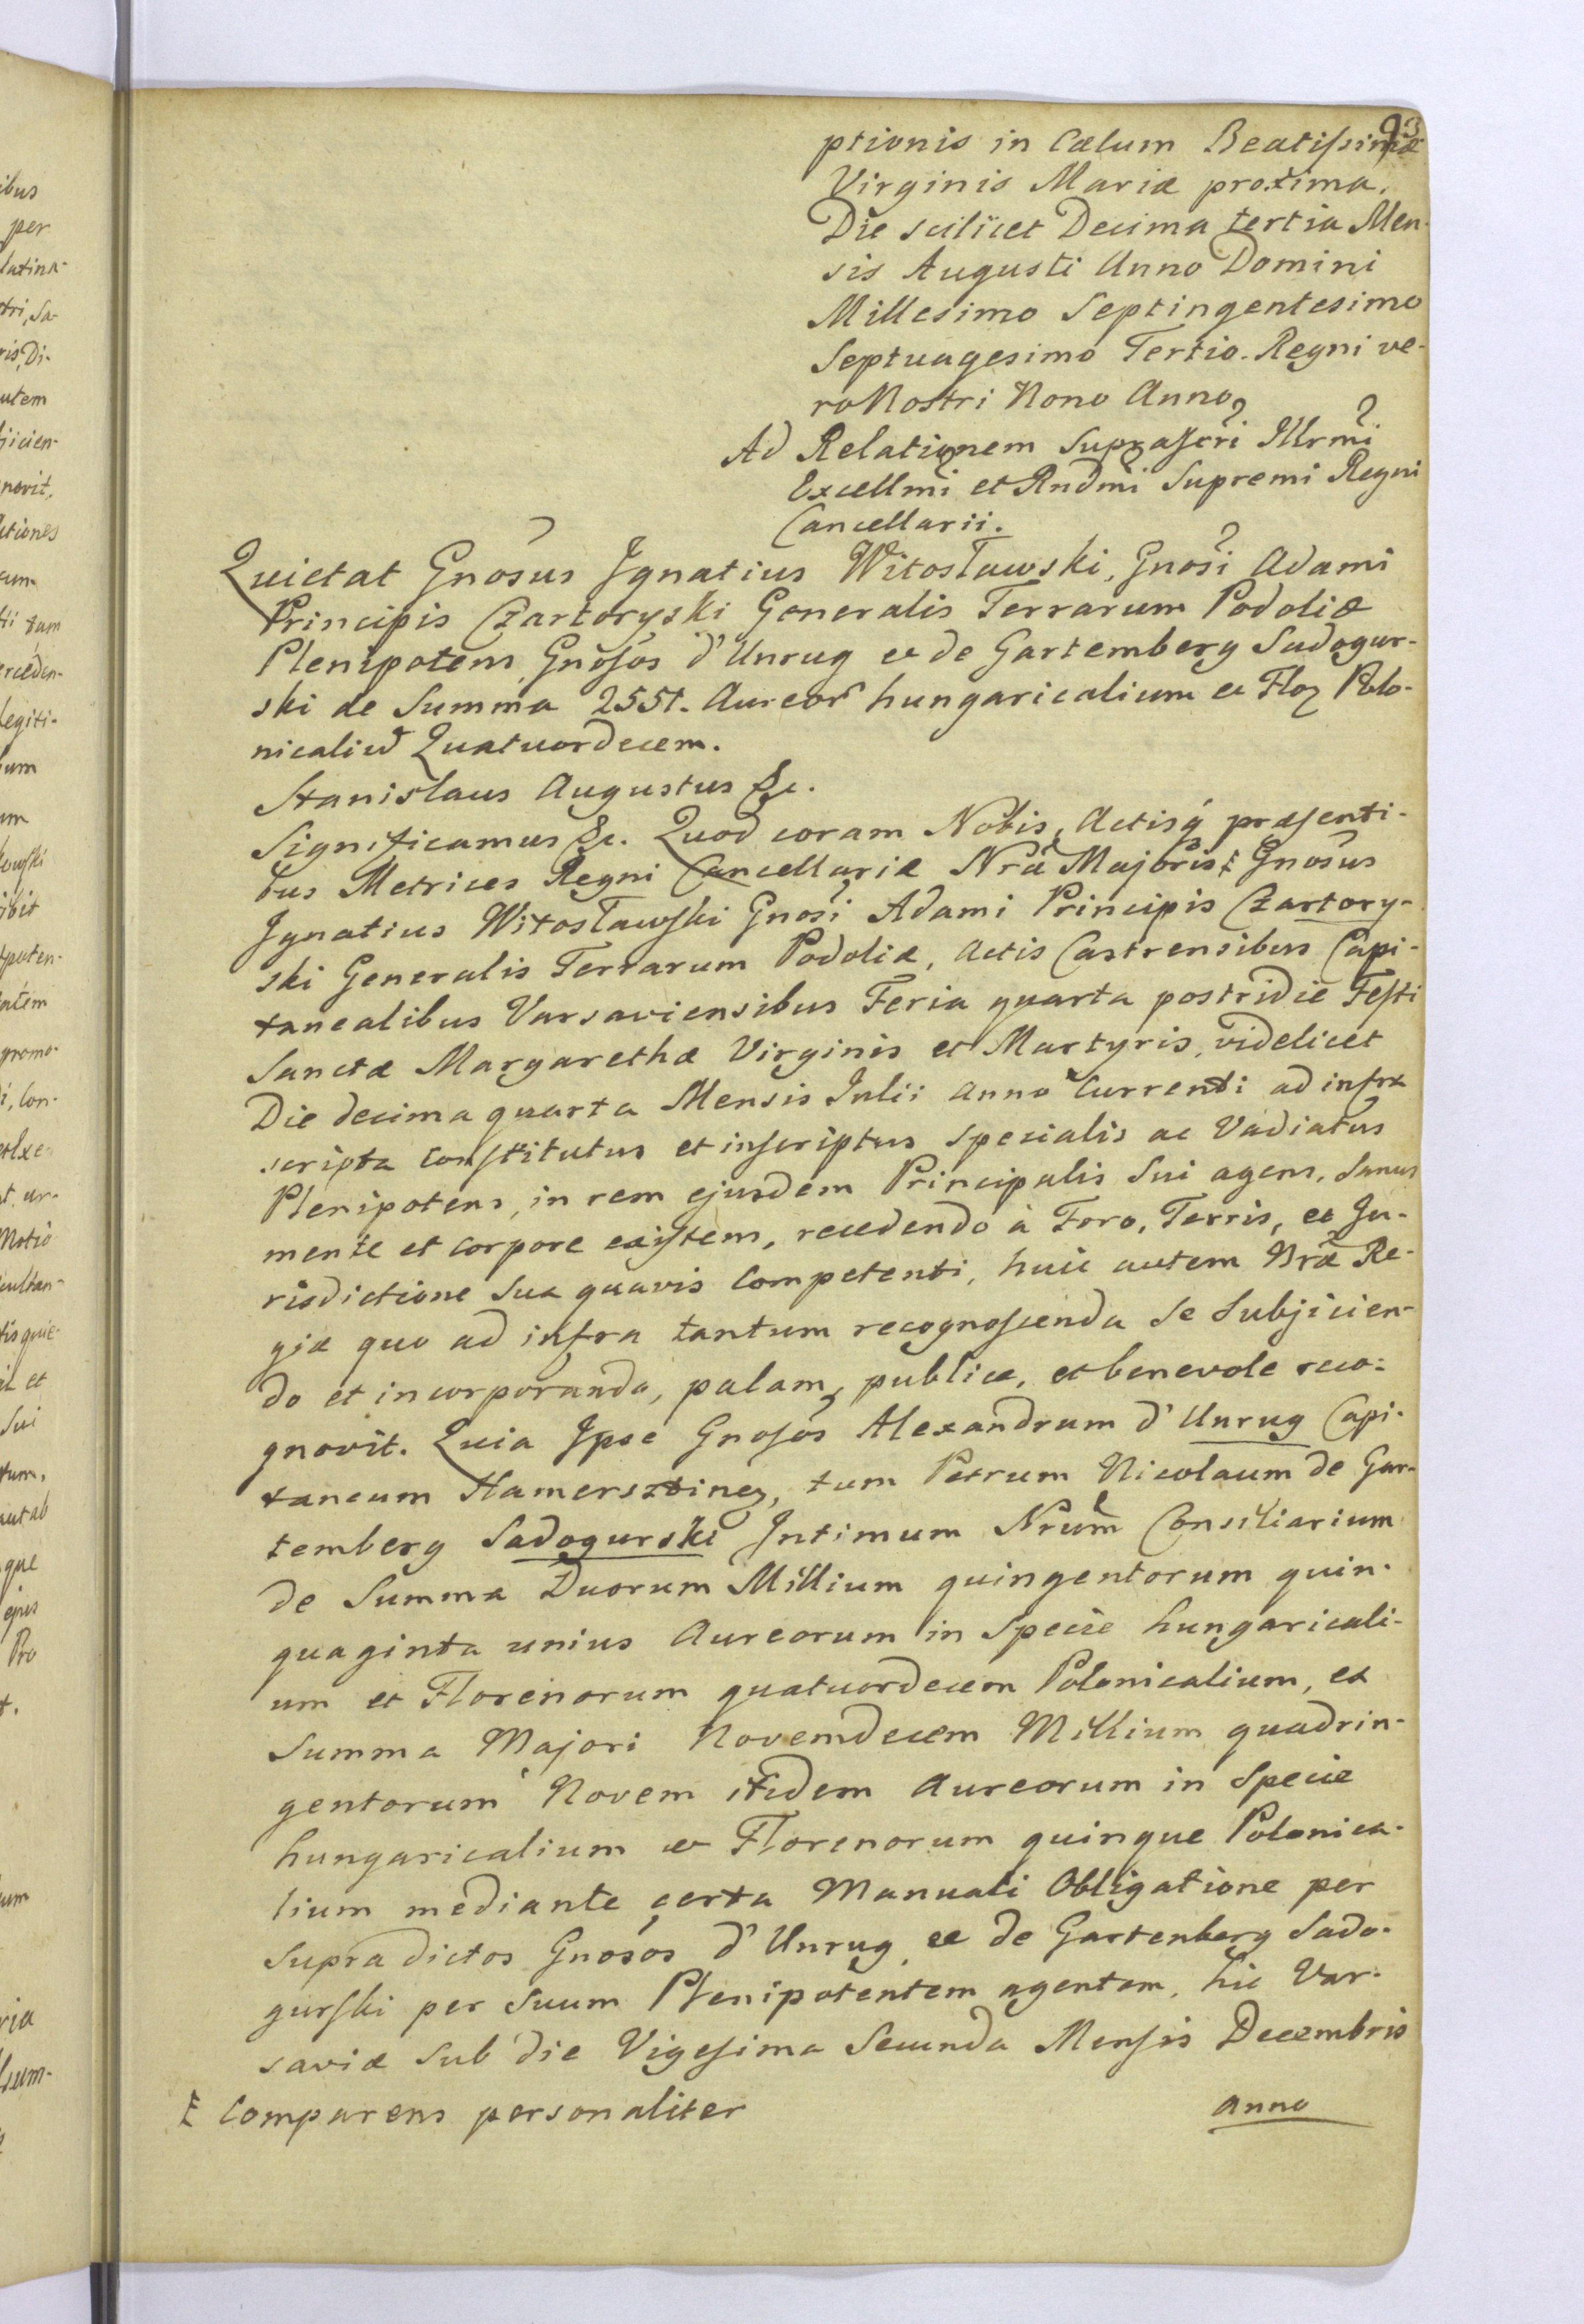 93
ptionis in Cælum Beatissimæ
Virginis Mariæ proxima,
Die scilicet Decima tertia Men-
sis Augusti Anno Domini
Millesimo Septingentesimo
Septuagesimo Tertio. Regni ve-
ro Nostri Nono Anno,
Ad Relationem Suprascri Illrmi
Excellmi et Rndmi Supremi Regni
Cancellarii.
Quietat Gnosus Ignatius Witosławski, Gnosi Adami
Principis Czartoryski Generalis Terrarum Podoliæ
Plenipotens, Gnosos d'Unrug et de Gartemberg Sadogur-
ski de Summa 2551. Aureor hungaricalium et Flor Polo-
nicaliu Quatuordecem.
Stanislaus Augustus &c.
Significamus &c. Quod coram Nobis, Actisq præsenti-
bus Metrices Regni Cancellariæ Nræ Majoris, Gnosus
Ignatius Witosławski Gnosi Adami Principis Czartory-
ski Generalis Terrarum Podoliæ, Actis Castrensibus Capi-
tanealibus Varsaviensibus Feria quarta postridie Festi
Sanctæ Margarethæ Virginis et Martyris, videlicet
Die decima quarta Mensis Julii Anno Currenti ad infra
scripta constitutus et inscriptus specialis ac Vadiatus
Plenipotens, in rem ejusdem Principalis Sui agens, Sanus
mente et corpore existens, recedendo à Foro, Terris, et Ju-
risdictione sua quavis Competenti, huic autem Nræ Re-
giæ quo ad infra tantum recognoscenda se Subjicien-
do et incorporando, palam, publice, et benevole reco-
gnovit. Quia Ipse Gnosos Alexandrum d'Unrug Capi-
taneum Hamersztinen, tum Petrum Nicolaum de Gar-
temberg Sadogurski Intimum Nrum Consiliarium
de Summa Duorum Millium quingentorum quin-
quaginta unius Aureorum in Specie hungaricali-
um et Florenorum quatuordecem Polonicalium, ex
Summa Majori Novemdecem Millium quadrin-
gentorum Novem itidem Aureorum in Specie
hungaricalium et Florenorum quinque Polonica-
lium mediante certa Manuali Obligatione per
supradictos Gnosos d'Unrug et de Gartenberg Sado-
gurski per Suum Plenipotentem agentem, hic Var-
saviæ sub die Vigesima Secunda Mensis Decembris
Comparens personaliter
anno
ibus
per
latina-
tri, Sa-
ris, Di-
utem